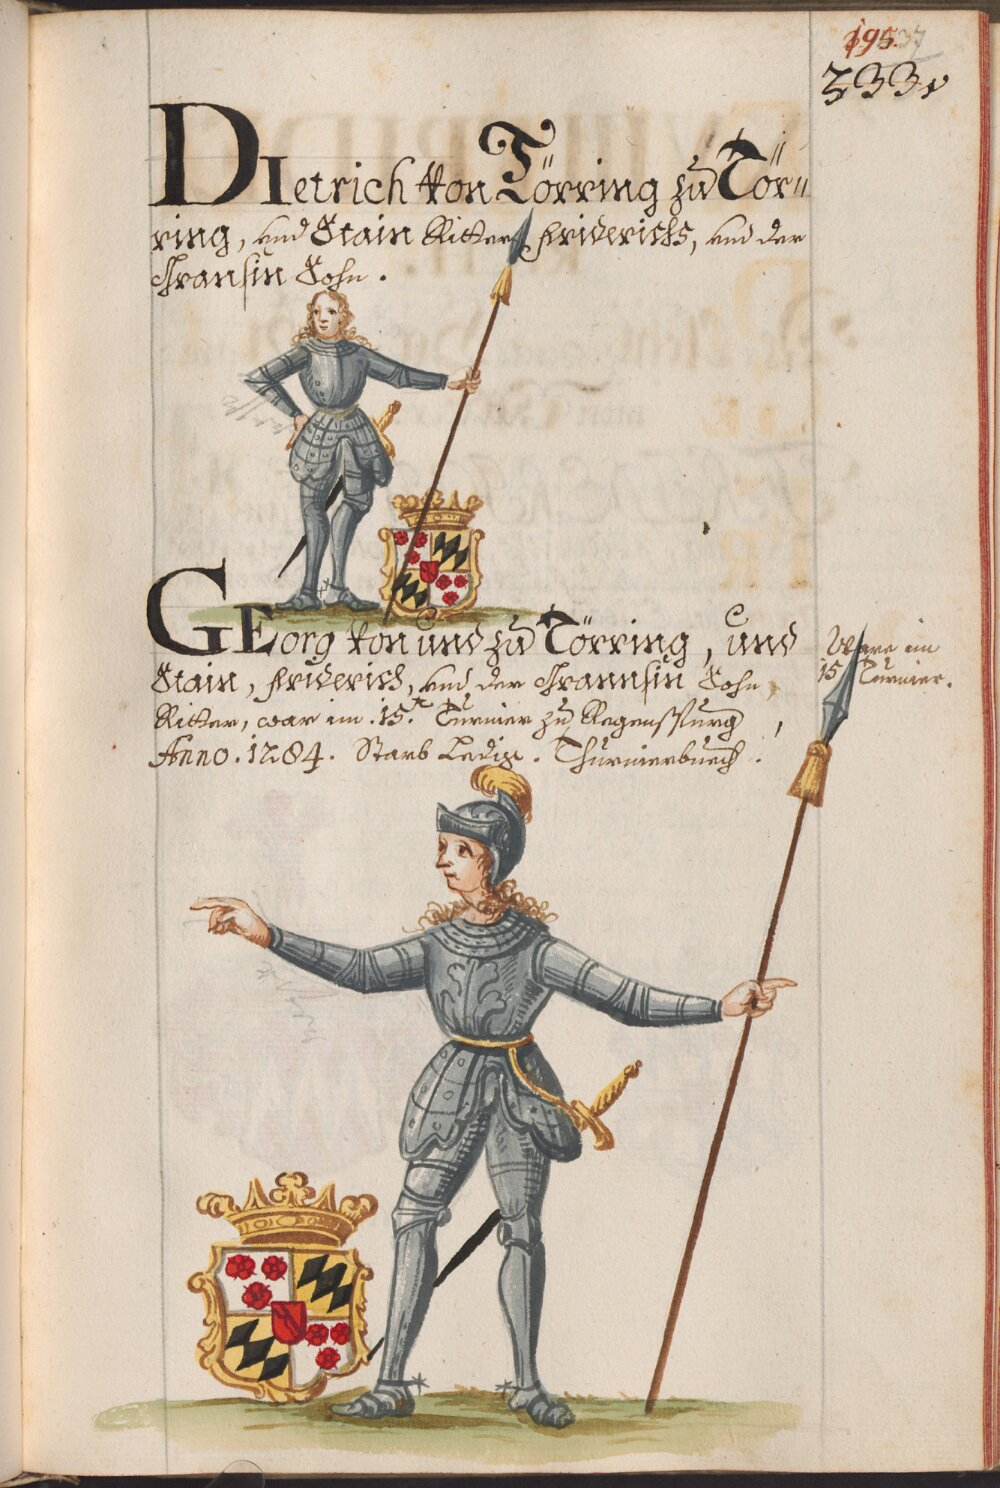 195. 37
333
DIetrich von Törring zu Tör=
ring, und Stain Ritter, Friderichs, und der
Fransin Sohn.
GEorg von und zu Törring, und
Stain, Friderich, und der Frannsin Sohn,
Ritter, war im .15.t Turnier zu Regenspurg,
Anno . 1284. Starb Ledig. Thurnierbuech.
Ware im
15 Turnier.